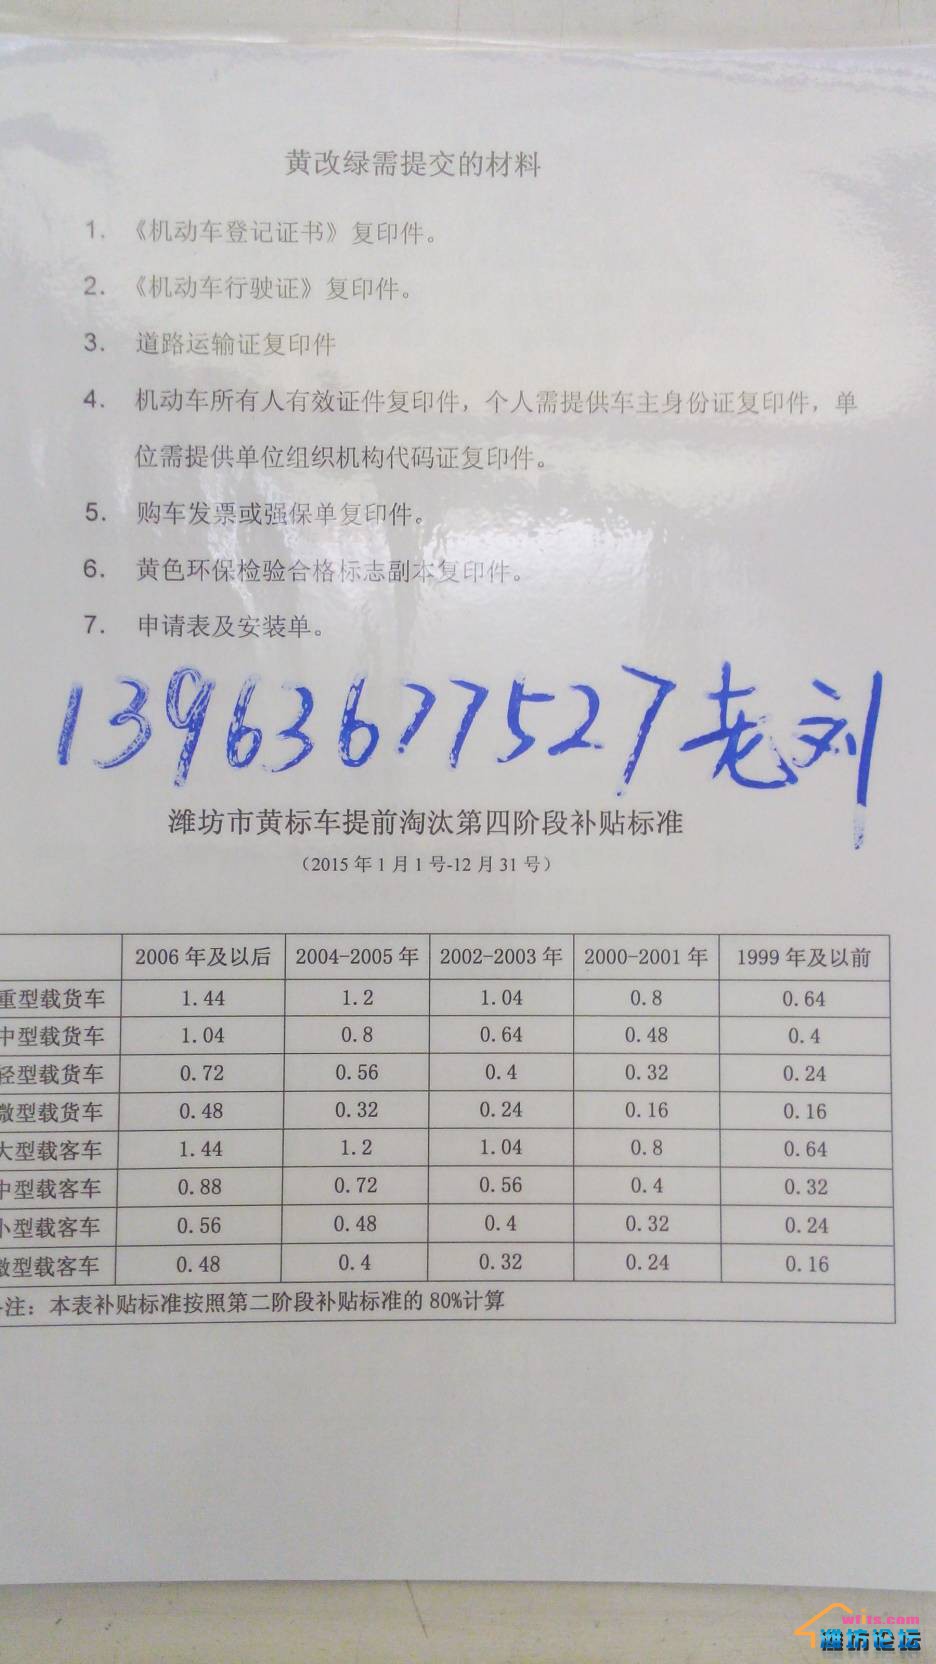 黄改绿需提交的材料
1. 《机动车登记证书》复印件。
2. 《机动车行驶证》复印件。
3. 道路运输证复印件
4. 机动车所有人有效证件复印件，个人需提供车主身份证复印件，单
位需提供单位组织机构代码证复印件。
5. 购车发票或强保单复印件。
6. 黄色环保检验合格标志副本复印件。
7. 申请表及安装单。
13963677527老刘
潍坊市黄标车提前淘汰第四阶段补贴标准
（2015年1月1号-12月31号）
2006年及以后 2004-2005年 2002-2003年 2000-2001年 1999年及以前
重型载货车 1.44 1.2 1.04 0.8 0.64
中型载货车 1.04 0.8 0.64 0.48 0.4
轻型载货车 0.72 0.56 0.4 0.32 0.24
微型载货车 0.48 0.32 0.24 0.16 0.16
大型载客车 1.44 1.2 1.04 0.8 0.64
中型载客车 0.88 0.72 0.56 0.4 0.32
小型载客车 0.56 0.48 0.4 0.32 0.24
微型载客车 0.48 0.4 0.32 0.24 0.16
注：本表补贴标准按照第二阶段补贴标准的80%计算
wfits.com
潍坊论坛